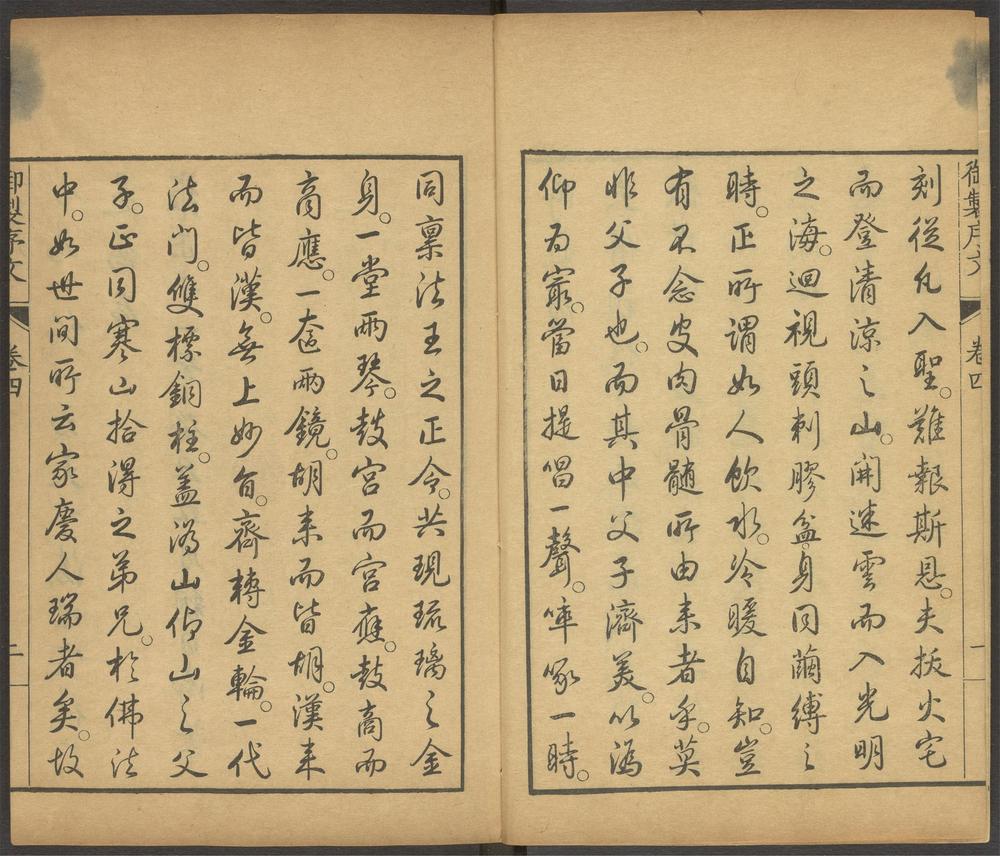 御製序文 卷四 一
刻從凡入聖。難報斯恩。夫抜火宅
而登清涼之山。開迷雲而入光明
之海。迴視頭刺膠盆。身同繭縛之
時。正所謂如人飲水。冷暖自知。豈
有不念皮肉骨髓所由来者乎。莫
非父子也。而其中父子濟美。以溈
仰為最。當日提唱一聲。啐啄一時。
同稟法王之正令。共現琉璃之金
身。一堂兩琴。鼓宮而宮應。鼓商而
商應。一奩兩鏡。胡来而皆胡。漢来
而皆漢。無上妙旨。齊轉金輪。一代
法門。雙標銅柱。蓋溈山仰山之父
子。正同寒山拾得之弟兄。於佛法
中。如世間所云家慶人瑞者矣。故
御製序文 卷四 二